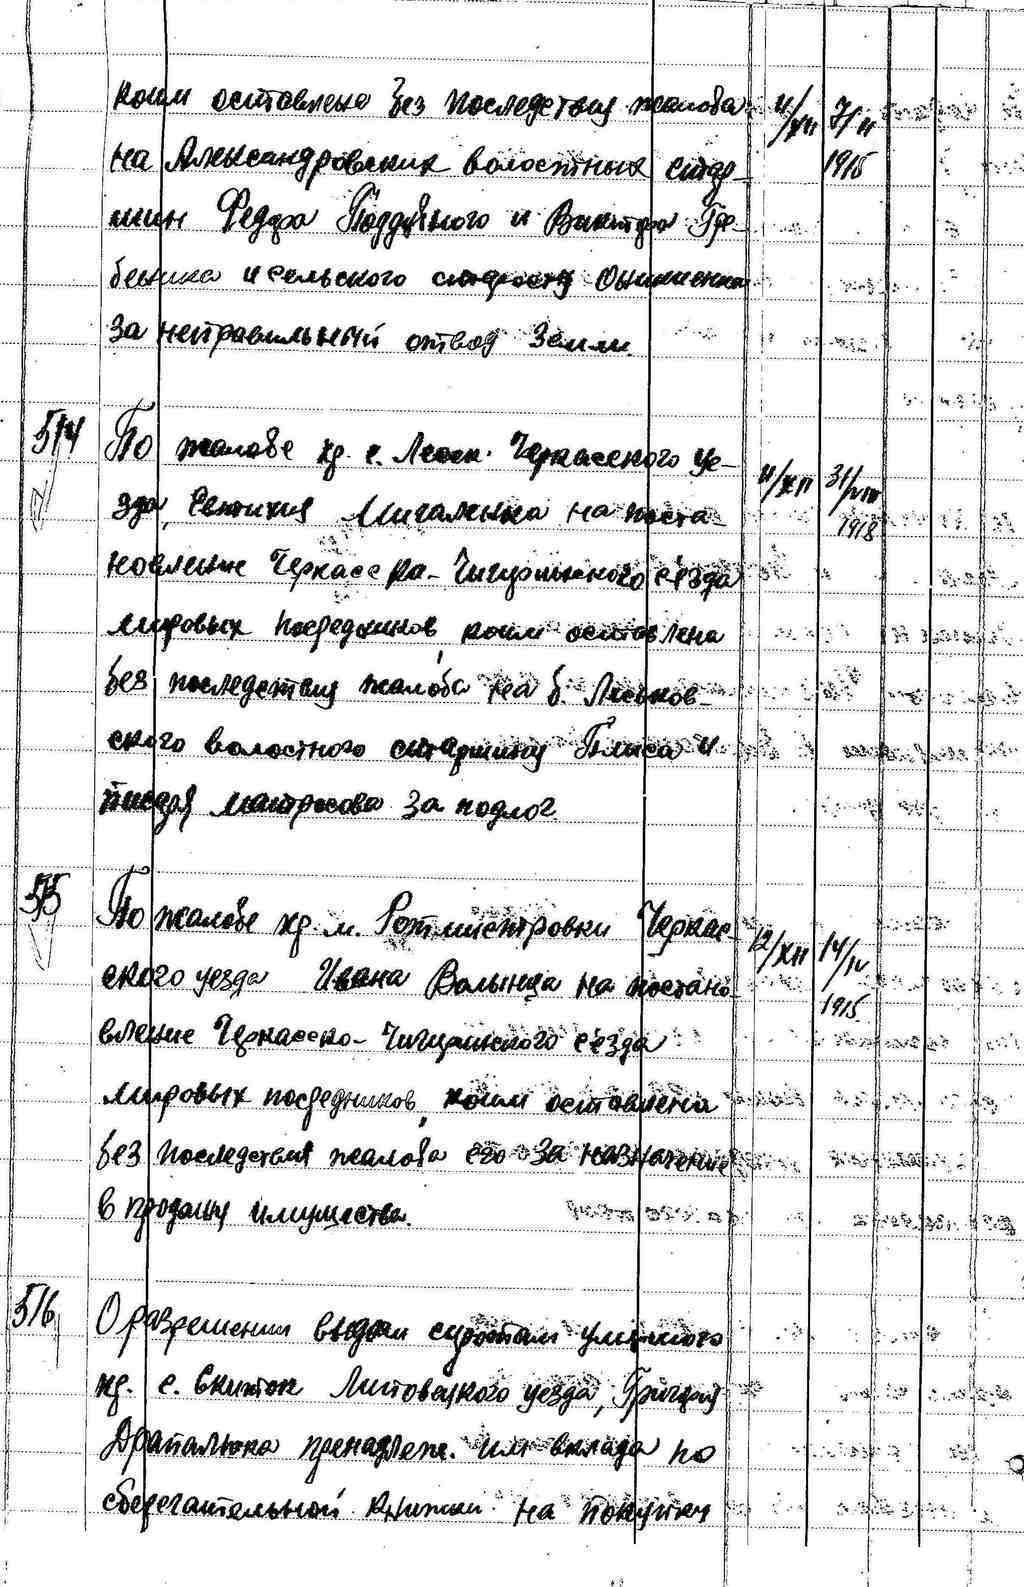 коим оставлена без последствия жалоба 11/XII 7/II
на Александровских волостных стар- 1915
шин Федора Поддубного и Виктора Гре-
беника и сельского старосту Онищенка
за неправильный отвод земли.
514 По жалобе кр. с. Леськ. Черкасского уе- 11/XII 31/VIII
зда, Евтихия Мигаленка на поста- 1918
новление Черкасско-Чигиринского с'езда
мировых посредников, коим оставлена
без последствия жалоба на б. Леськов-
ского волостного старшину Плыса и
писаря Матросова за подлог.
515 По жалобе кр. м. Ротмистровки Черкас- 12/XII 14/IV
ского уезда Ивана Волынца на постано- 1915
вление Черкасско-Чигиринского с'езда
мировых посредников, коим оставлена
без последствия жалоба его за назначение
в продажу имущества.
516 О разрешении выдачи сиротам умершого
кр. с. Скиток Липовецкого уезда, Григория
Драпалюка пренадлеж. им вклада по
сберегательной книжки на покупку